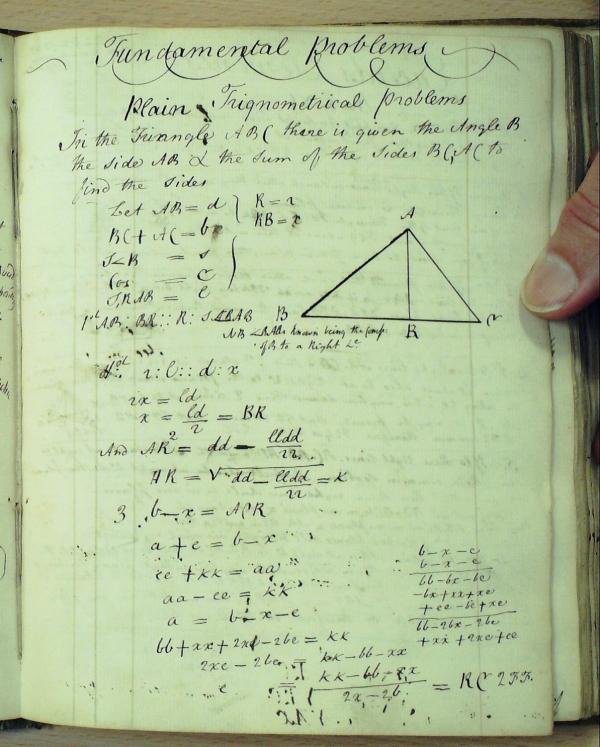 Fundamental Problems
Plain Trignometrical Problems
In the Triangle ABC there is given the Angle B
the side AB & the sum of the sides BC, AC to
find the sides
Let AB = d } R = r
BC + AC = b RB = x
S∠B = s
Cos = c
S,RAB = l
1st AB : BR :: R : S∠BAB
NB ∠RAB is known being the Comp.
of B to a Right ∠e
A
B
R
C
r : l :: d : x
rx = ld
x = ld/r = BR
And AR² = dd - lldd/rr
AR = √dd - lldd/rr = K
3 b - x = ACR
a + e = b - x
ee + kk = aa
aa - ee = kk
a = b - x - e
bb + xx + 2xe - 2be = kk
2xe - 2be = kk - bb - xx
e = kk - bb - xx/2x - 2b = RC
b - x - e
b - x - e
bb - bx - be
- bx + xx + xe
+ ee - be + xe
bb - 2bx - 2be
+ xx + 2xe + ee